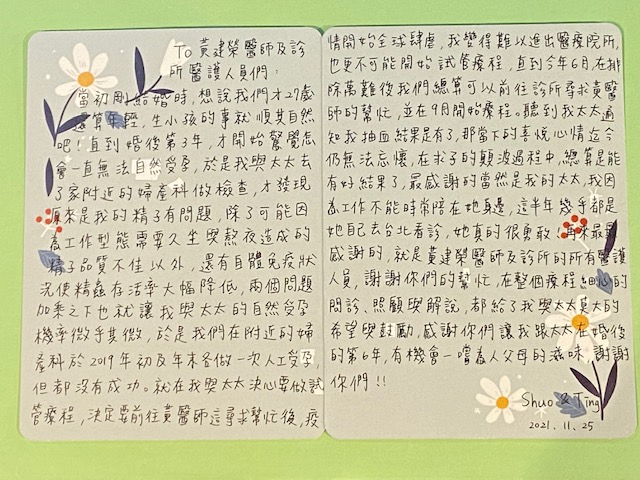 To 黃建榮醫師及診
所醫護人員們：
當初剛結婚時，想說我們才27歲
還算年輕，生小孩的事就順其自然
吧！直到婚後第3年，才開始驚覺怎
會一直無法自然受孕，於是我與太太去
了家附近的婦產科做檢查，才發現
原來是我的精子有問題，除了可能因
為工作型態需要久坐與熬夜造成的
精子品質不佳以外，還有自體免疫狀
況使精蟲存活率大幅降低，兩個問題
加乘之下也就讓我與太太的自然受孕
機率微乎其微，於是我們在附近的婦
產科於2019年初及年末各做一次人工受孕，
但都沒有成功。就在我與太太決心要做試
管療程，決定要前往黃醫師這尋求幫忙後，疫
情開始全球肆虐，我變得難以進出醫療院所，
也更不可能開始試管療程，直到今年6月，在排
除萬難後我們總算可以前往診所尋求黃醫
師的幫忙，並在9月開始療程。聽到我太太通
知我抽血結果是有了，那當下的喜悅心情迄今
仍無法忘懷，在求子的顛波過程中，總算是能
有好結果了，最感謝的當然是我的太太，我因
為工作不能時常陪在她身邊，這半年幾乎都是
她自己去台北看診，她真的很勇敢！再來最
感謝的，就是黃建榮醫師及診所的所有醫護
人員，謝謝你們的幫忙，在整個療程細心的
問診、照顧與解說，都給了我與太太莫大的
希望與鼓勵，感謝你們讓我跟太太在婚後
的第6年，有機會一嚐為人父母的滋味，謝謝
你們!!
Shuo & Ting
2021.11.25